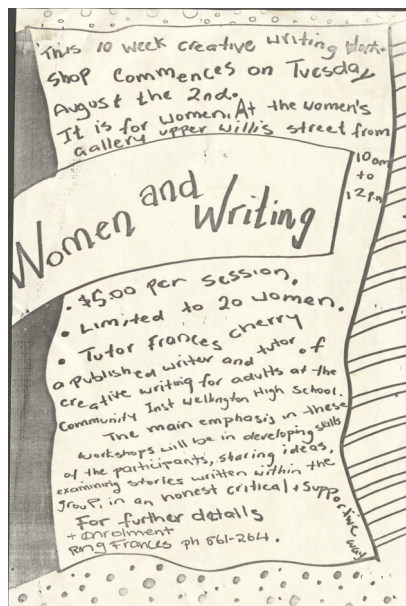 This 10 week creative writing Work-
shop Commences on Tuesday
August the 2nd.
It is for women. At the women's
Gallery upper willis street from
10am
to
12pm
Women and Writing
• $5.00 per session.
• Limited to 20 women.
• Tutor Frances cherry
a published writer and tutor of
creative writing for adults at the
Community Inst Wellington High School.
The main emphasis in these
workshops will be in developing skills
of the participants, sharing ideas,
examining stories written within the
group, in an honest critical + supportive way
For further details
+ enrolment
Ring Frances ph 861-264.